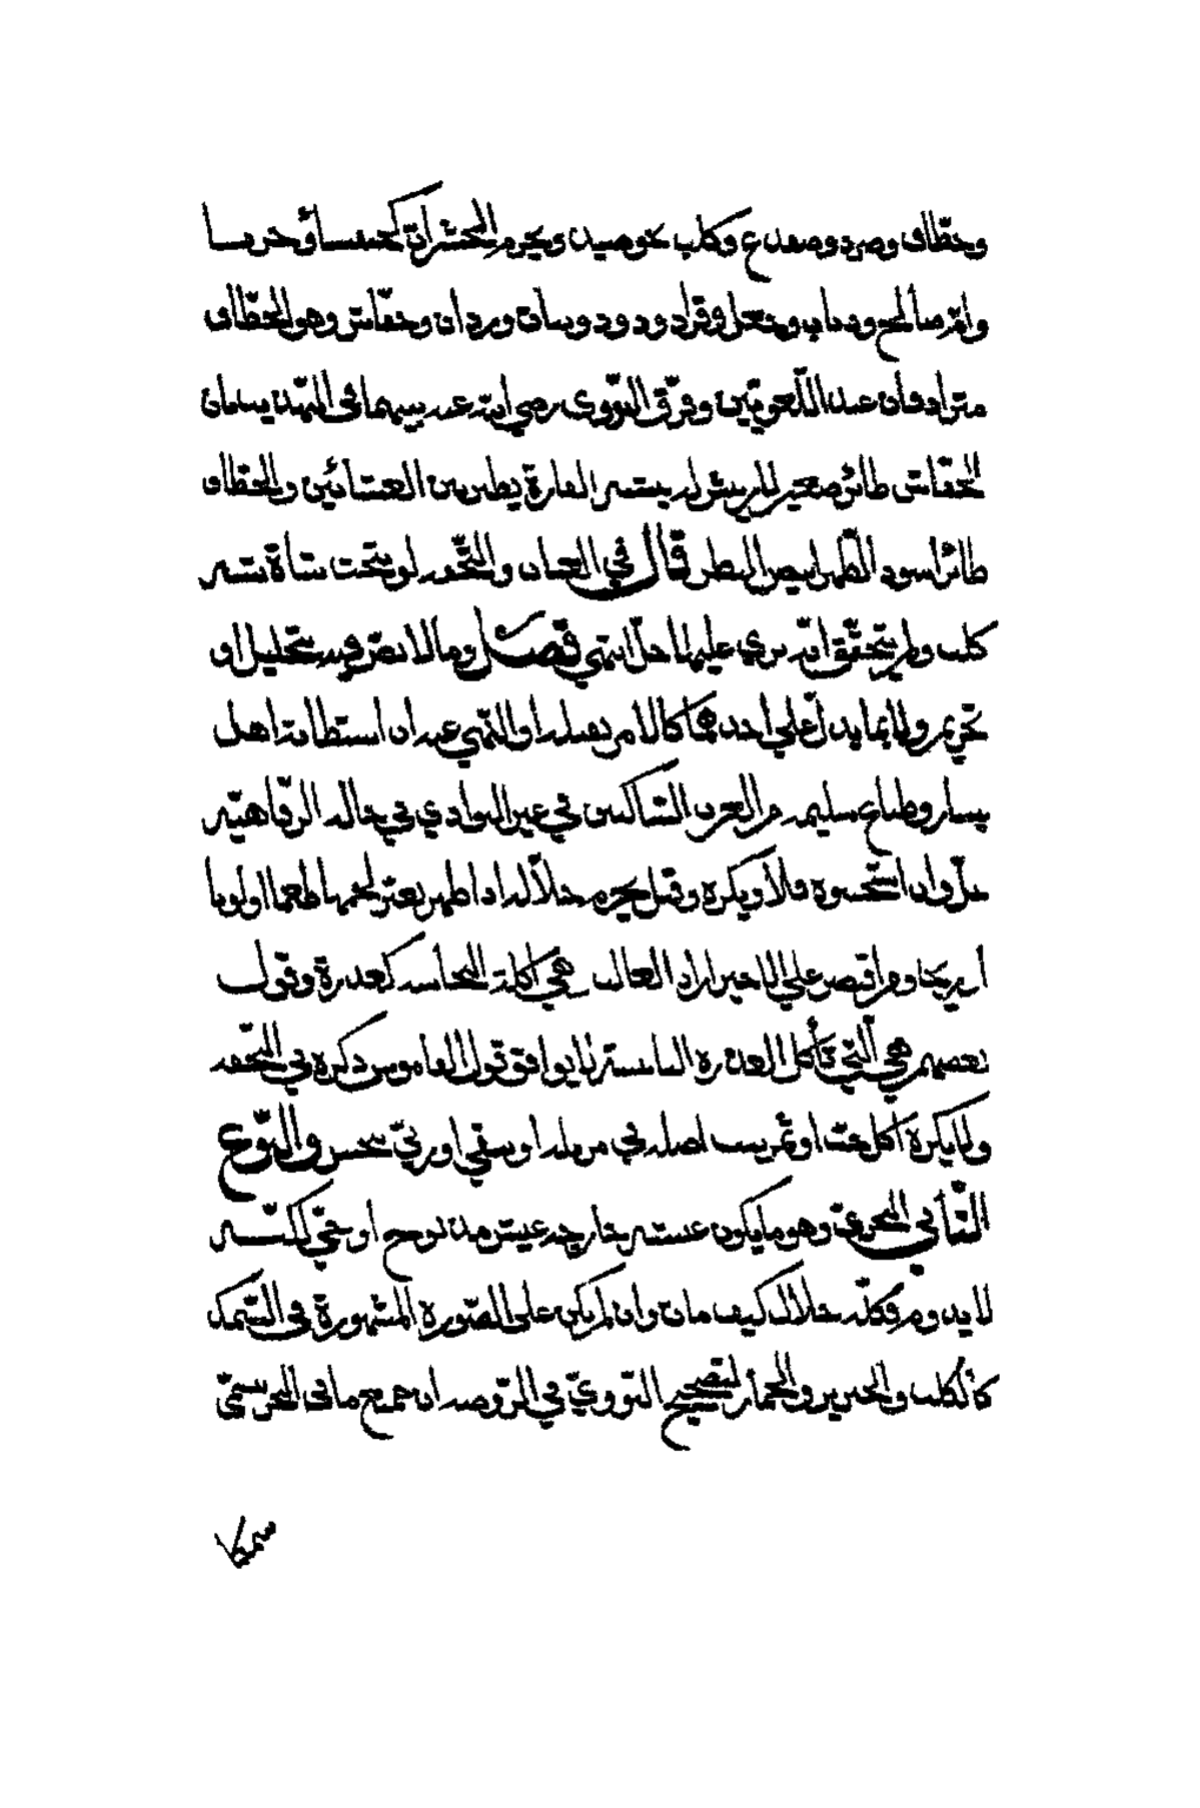 وخطّاف وصرد وضفدع وكلب نحو صيد ويحرم الحشرات كخنفسا وحربا
وابرص الح وذباب وجعل وقراد ودود وبنات وردان وخفّاش وهو الخطّاف
مترادفان عند اللّغويّين وفرّق النّووي رضي الله عنه بينهما في التهذيب بان
الخفّاش طائر صغير لا ريش له يشبه الفارة يطير بين العشائين والخطّاف
طائر اسود الظّهر ابيض البطن قال في العباب والتّحفه لو نتجت شاة شبه
كلب ولم يتحقّق انّه نزي عليها حلّ انتهي فصل وما لا نصّ فيه بتحليل او
تحريم ولا بما يدل علي احدهما كالامر بقتله او النّهي عنه ان استطابه اهل
يسار وطباع سليمه من العرب السّاكنين في غير البوادي في حالة الرّفاهيّه
حلّ وان استخبثوه فلا ويكره وقيل يحرم جلالة اذا ظهر تغيّر لحمها طعما او لونا
او ريحا ومن اقتصر علي الاخير اراد الغالب هي اكلة النّجاسه كعذرة وقول
بعضهم هي الّتي تأكل العذرة اليابسة لا يوافق قول القاموس ذكره في التّحفه
ولا يكره اكل حبّ او ثمر نبت اصله في مزبله او سقي او ربّي بنجس والنّوع
الثّاني البحريّ وهو ما يكون عيشه خارجه عيش مذبوح او حيّ لكنّه
لا يدوم فكلّه حلال كيف مات وان لم يكن على الصّورة المشهورة في السّمك
كالكلب والخنزير والحمار لتصحيح النّووي في الرّوضه ان جميع ما في البحر يسمّي
سمكا